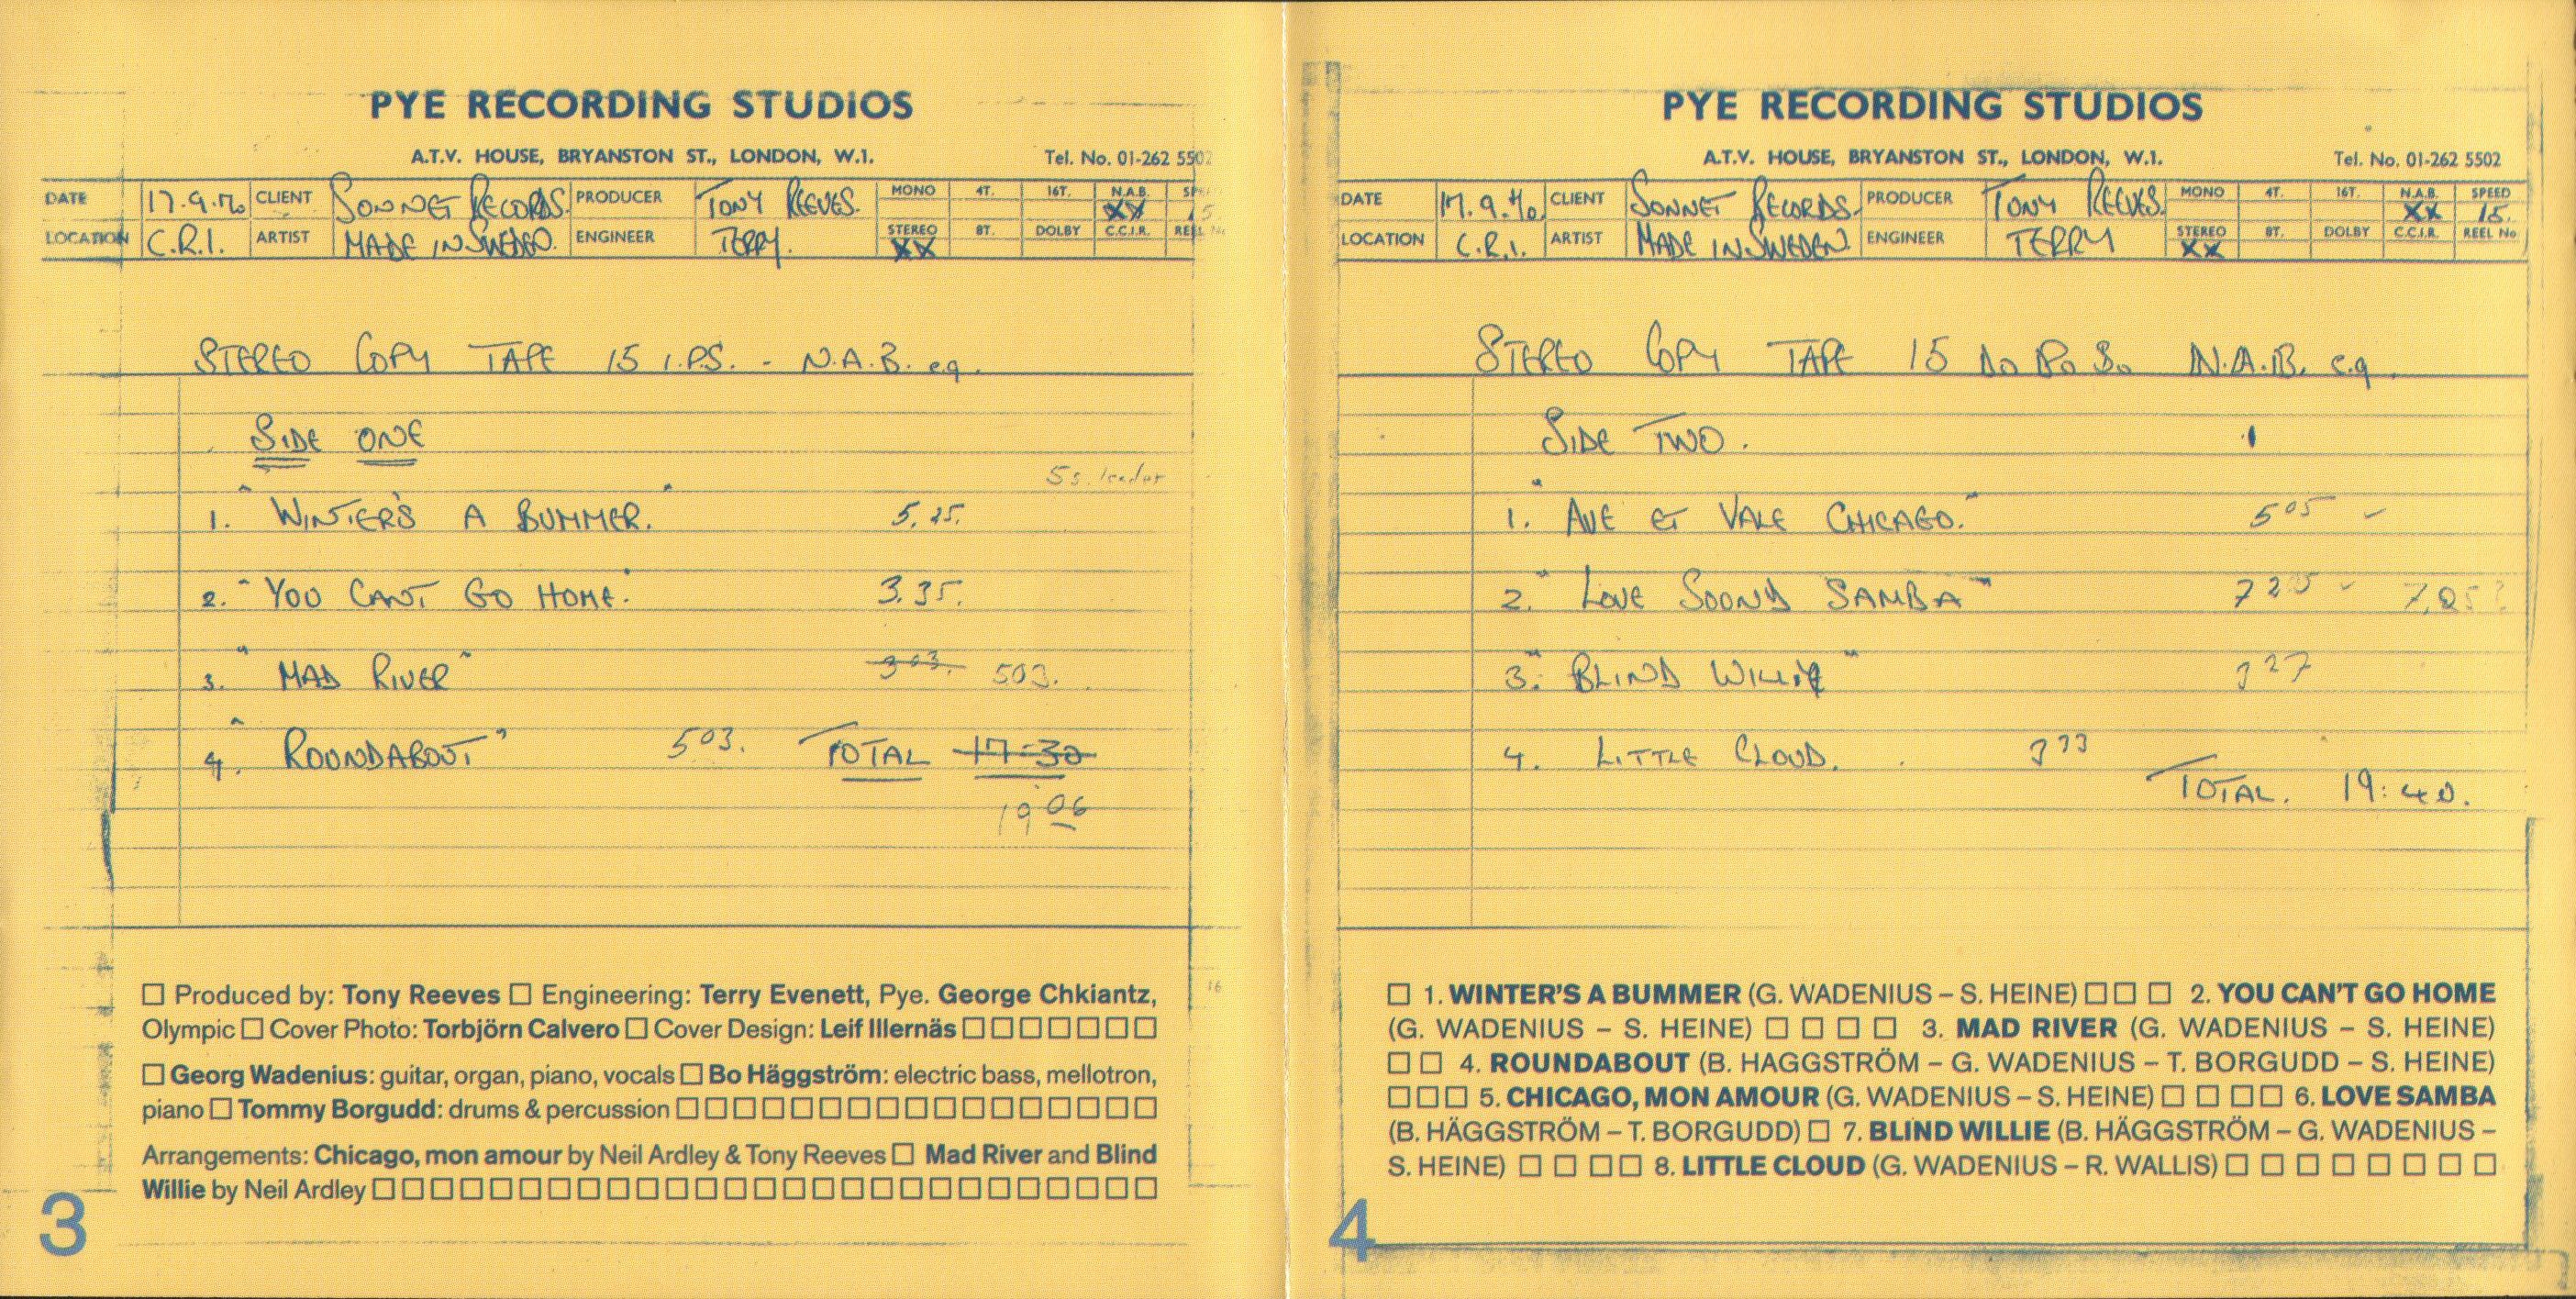 PYE RECORDING STUDIOS
A.T.V. HOUSE, BRYANSTON ST., LONDON, W.1. Tel. No. 01-262 5502
DATE 17.9.70 CLIENT SONNET RECORDS. PRODUCER TONY REEVES. MONO 4T. 16T. N.A.B. XX
LOCATION C.R.I. ARTIST MADE IN SWEDEN. ENGINEER TERRY. STEREO XX 8T. DOLBY C.C.I.R. REEL No
STEREO COPY TAPE 15 I.P.S. - N.A.B. eq.
SIDE ONE
5s. leader
1. "WINTER'S A BUMMER." 5.25.
2. "YOU CANT GO HOME." 3.35.
3. "MAD RIVER" 303. 503.
4. "ROUNDABOUT" 503. TOTAL 17-30
19 06
☐ Produced by: Tony Reeves ☐ Engineering: Terry Evenett, Pye. George Chkiantz,
Olympic ☐ Cover Photo: Torbjörn Calvero ☐ Cover Design: Leif Illernäs ☐☐☐☐☐☐☐
☐ Georg Wadenius: guitar, organ, piano, vocals ☐ Bo Häggström: electric bass, mellotron,
piano ☐ Tommy Borgudd: drums & percussion ☐☐☐☐☐☐☐☐☐☐☐☐☐☐☐☐☐
Arrangements: Chicago, mon amour by Neil Ardley & Tony Reeves ☐ Mad River and Blind
Willie by Neil Ardley ☐☐☐☐☐☐☐☐☐☐☐☐☐☐☐☐☐☐☐☐☐☐☐☐☐☐☐
3
PYE RECORDING STUDIOS
A.T.V. HOUSE, BRYANSTON ST., LONDON, W.1. Tel. No. 01-262 5502
DATE 17.9.70. CLIENT SONNET RECORDS. PRODUCER TONY REEVES. MONO 4T. 16T. N.A.B. XX SPEED 15.
LOCATION C.R.I. ARTIST MADE IN SWEDEN ENGINEER TERRY STEREO XX 8T. DOLBY C.C.I.R. REEL No
STEREO COPY TAPE 15 I.P.S. N.A.B. eq.
SIDE TWO.
1. "AVE ET VALE CHICAGO." 5 05
2. "LOVE SOUND SAMBA" 7 25 7.25?
3. "BLIND WILLIE" 3 27
4. LITTLE CLOUD. 3 33
TOTAL. 19:40.
☐ 1. WINTER'S A BUMMER (G. WADENIUS – S. HEINE) ☐ ☐ ☐ 2. YOU CAN'T GO HOME
(G. WADENIUS – S. HEINE) ☐ ☐ ☐ ☐ 3. MAD RIVER (G. WADENIUS – S. HEINE)
☐ ☐ 4. ROUNDABOUT (B. HAGGSTRÖM – G. WADENIUS – T. BORGUDD – S. HEINE)
☐ ☐ ☐ 5. CHICAGO, MON AMOUR (G. WADENIUS – S. HEINE) ☐ ☐ ☐ ☐ 6. LOVE SAMBA
(B. HÄGGSTRÖM – T. BORGUDD) ☐ 7. BLIND WILLIE (B. HÄGGSTRÖM – G. WADENIUS –
S. HEINE) ☐ ☐ ☐ ☐ 8. LITTLE CLOUD (G. WADENIUS – R. WALLIS) ☐ ☐ ☐ ☐ ☐ ☐ ☐ ☐
4